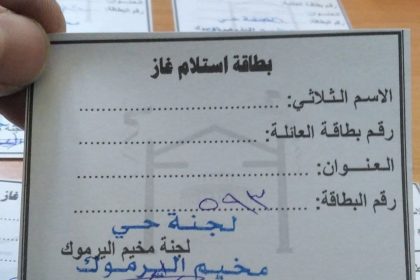 بطاقة استلام غاز
الاسم الثلاثي:
رقم بطاقة العائلة:
العنوان:
رقم البطاقة: ٥٩٣
لجنة حي
لجنة مخيم اليرموك
مخيم اليرموك
غاز